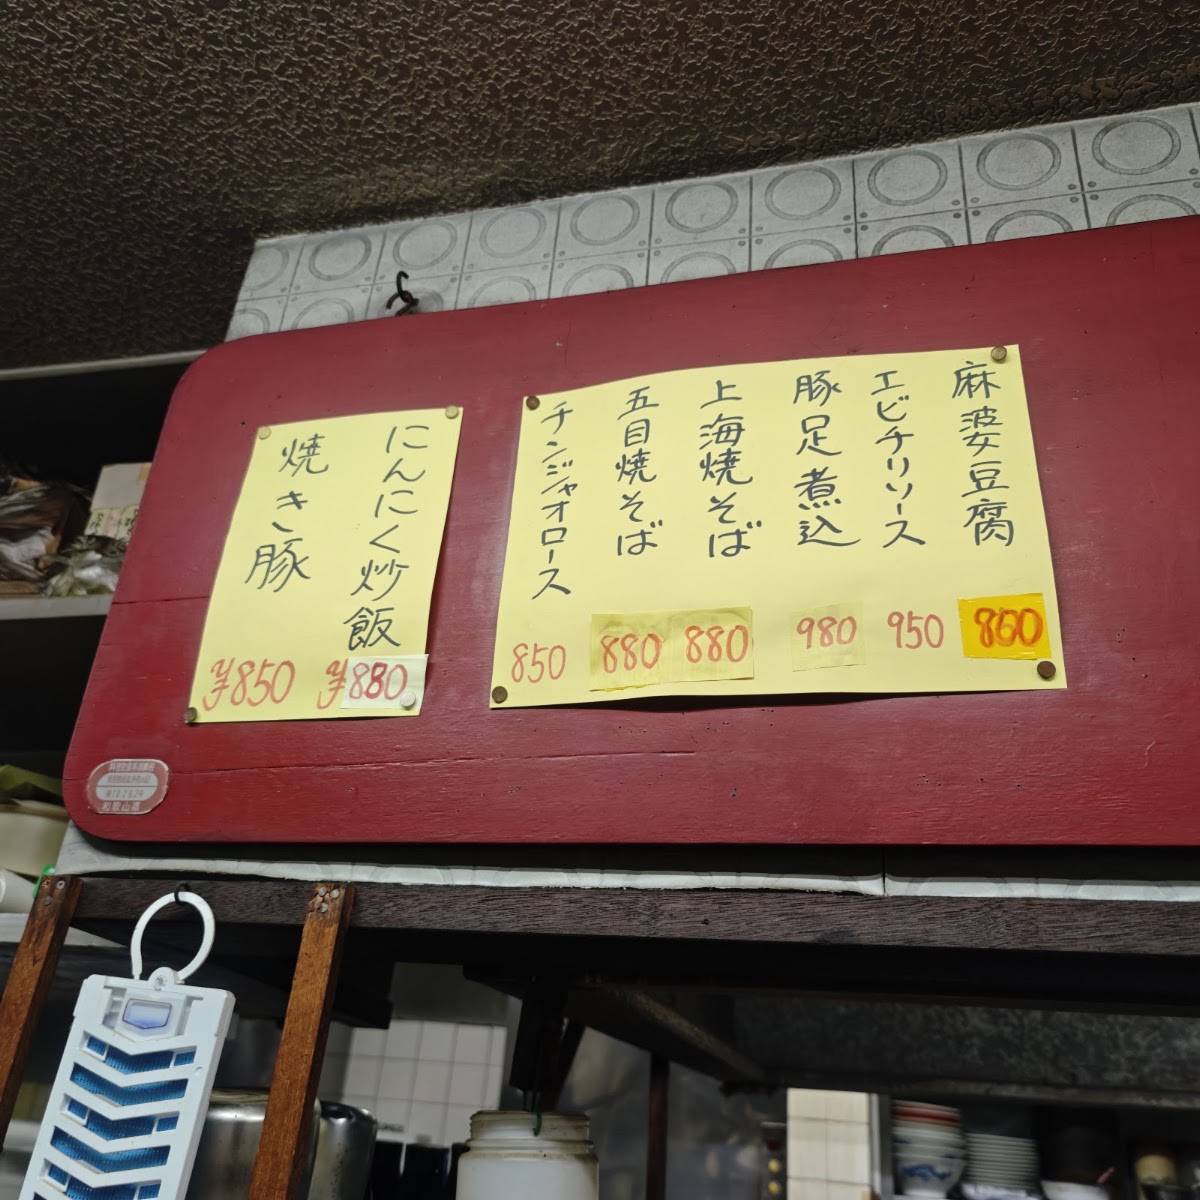 麻婆豆腐
860
エビチリソース
950
豚足煮込
980
上海焼そば
880
五目焼そば
880
チンジャオロース
850
にんにく炒飯
¥880
焼き豚
¥850
和歌山県